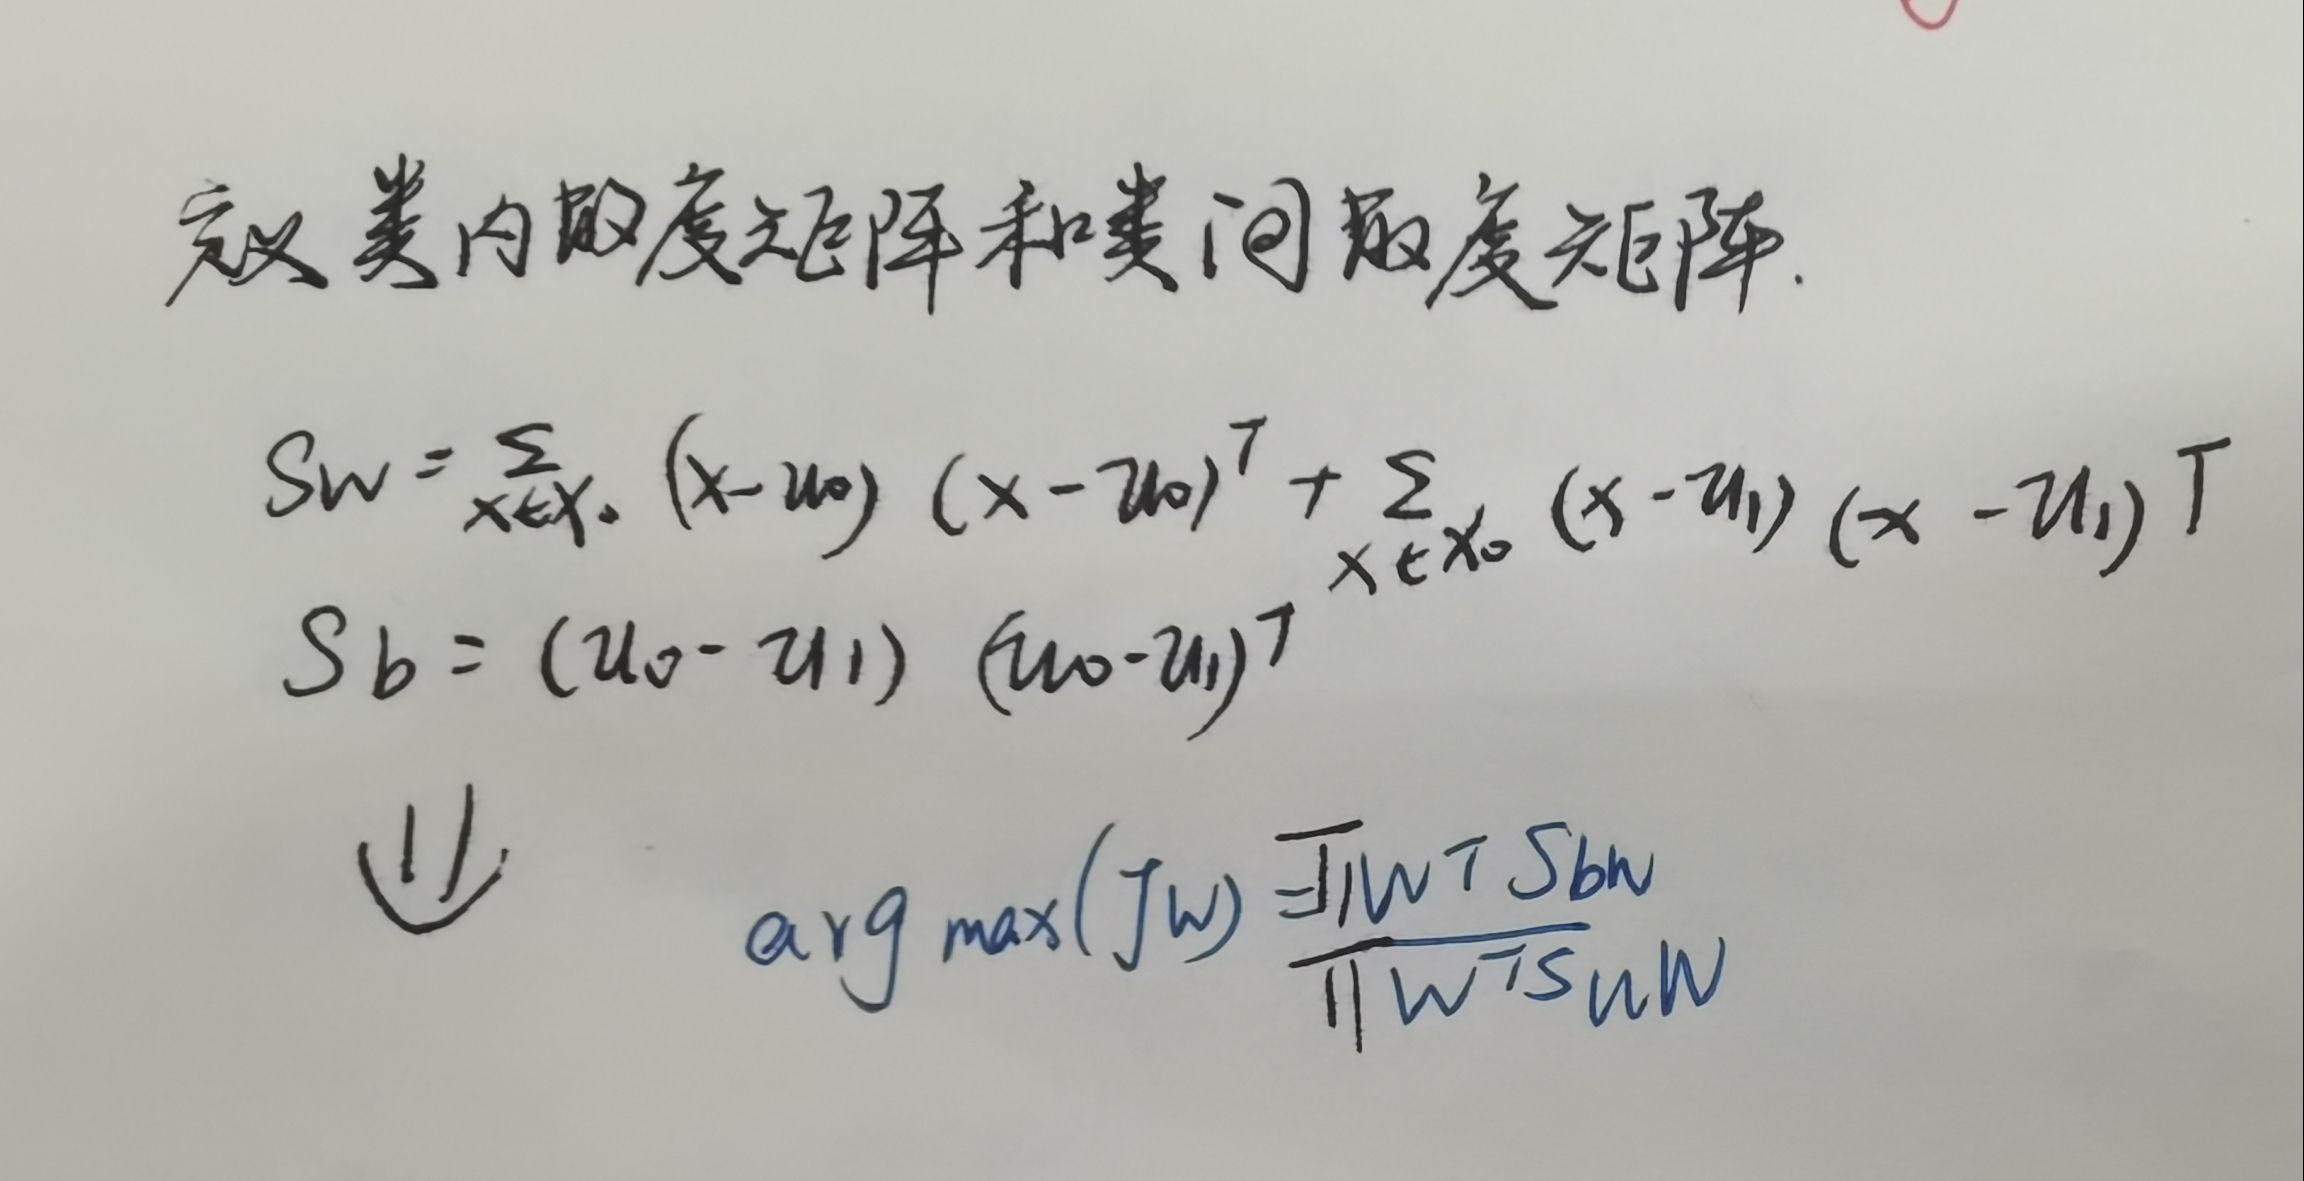 定义类内散度矩阵和类间散度矩阵.
Sw = Σ x∈X₀ (x-u₀) (x-u₀)ᵀ + Σ x∈X₀ (x-u₁) (x-u₁)ᵀ
Sb = (u₀-u₁) (u₀-u₁)ᵀ
⇓
arg max(JW) = ∏ Wᵀ Sb W / ∏ Wᵀ Sw W